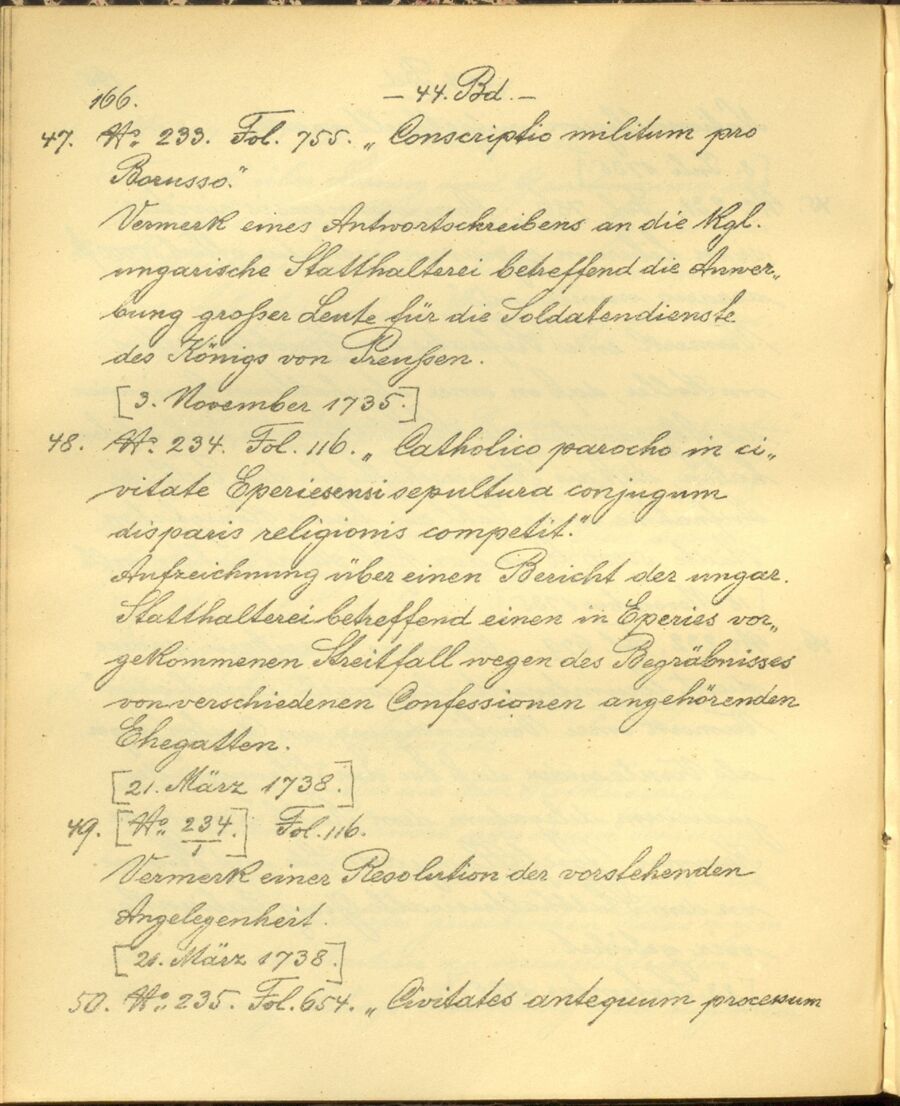 166. — 44. Bd. —
47. No. 233. Fol. 755. „Conscriptio militum pro
Borusso."
Vermerk eines Antwortschreibens an die Kgl.
ungarische Statthalterei betreffend die Anwer„
bung großer Leute für die Soldatendienste
des Königs von Preußen.
[3. November 1735.]
48. No. 234. Fol. 116. „Catholico parocho in ci„
vitate Eperiesensi sepultura conjugum
disparis religionis competit."
Aufzeichnung über einen Bericht der ungar.
Statthalterei betreffend einen in Eperies vor„
gekommenen Streitfall wegen des Begräbnisses
von verschiedenen Confessionen angehörenden
Ehegatten.
[21. März 1738.]
49. [No. 234/1] Fol. 116.
Vermerk einer Resolution der vorstehenden
Angelegenheit.
[21. März 1738.]
50. No. 235. Fol. 654. „Civitates antequum processum